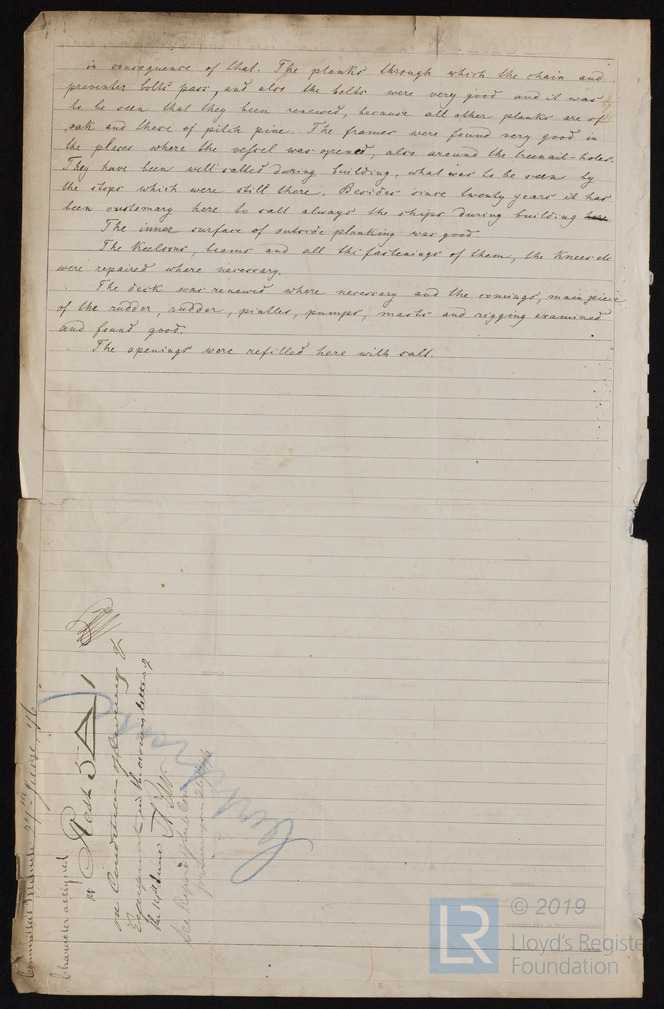 in consequence of that. The planks through which the chain and
preventer bolts pass, and also the bolts were very good and it was
to be seen that they been renewed, because all other planks are of
oak and these of pitch pine. The frames were found very good in
the places where the vessel was opened, also around the treenail-holes.
They have been well salted during building, what was to be seen by
the stops which were still there. Besides since twenty years it has
been customary here to salt always the ships during building here.
The inner surface of outside planking was good.
The Keelsons, beams and all the fastenings of them, the Knees etc
were repaired where necessary.
The deck was renewed where necessary and the comings, main piece
of the rudder, rudder, pintles, pumps, masts and rigging examined
and found good.
The openings were refilled here with salt.
Committee's Minute
Character assigned
A1
on Condition of
Equipment
© 2019
LR
Lloyd's Register
Foundation